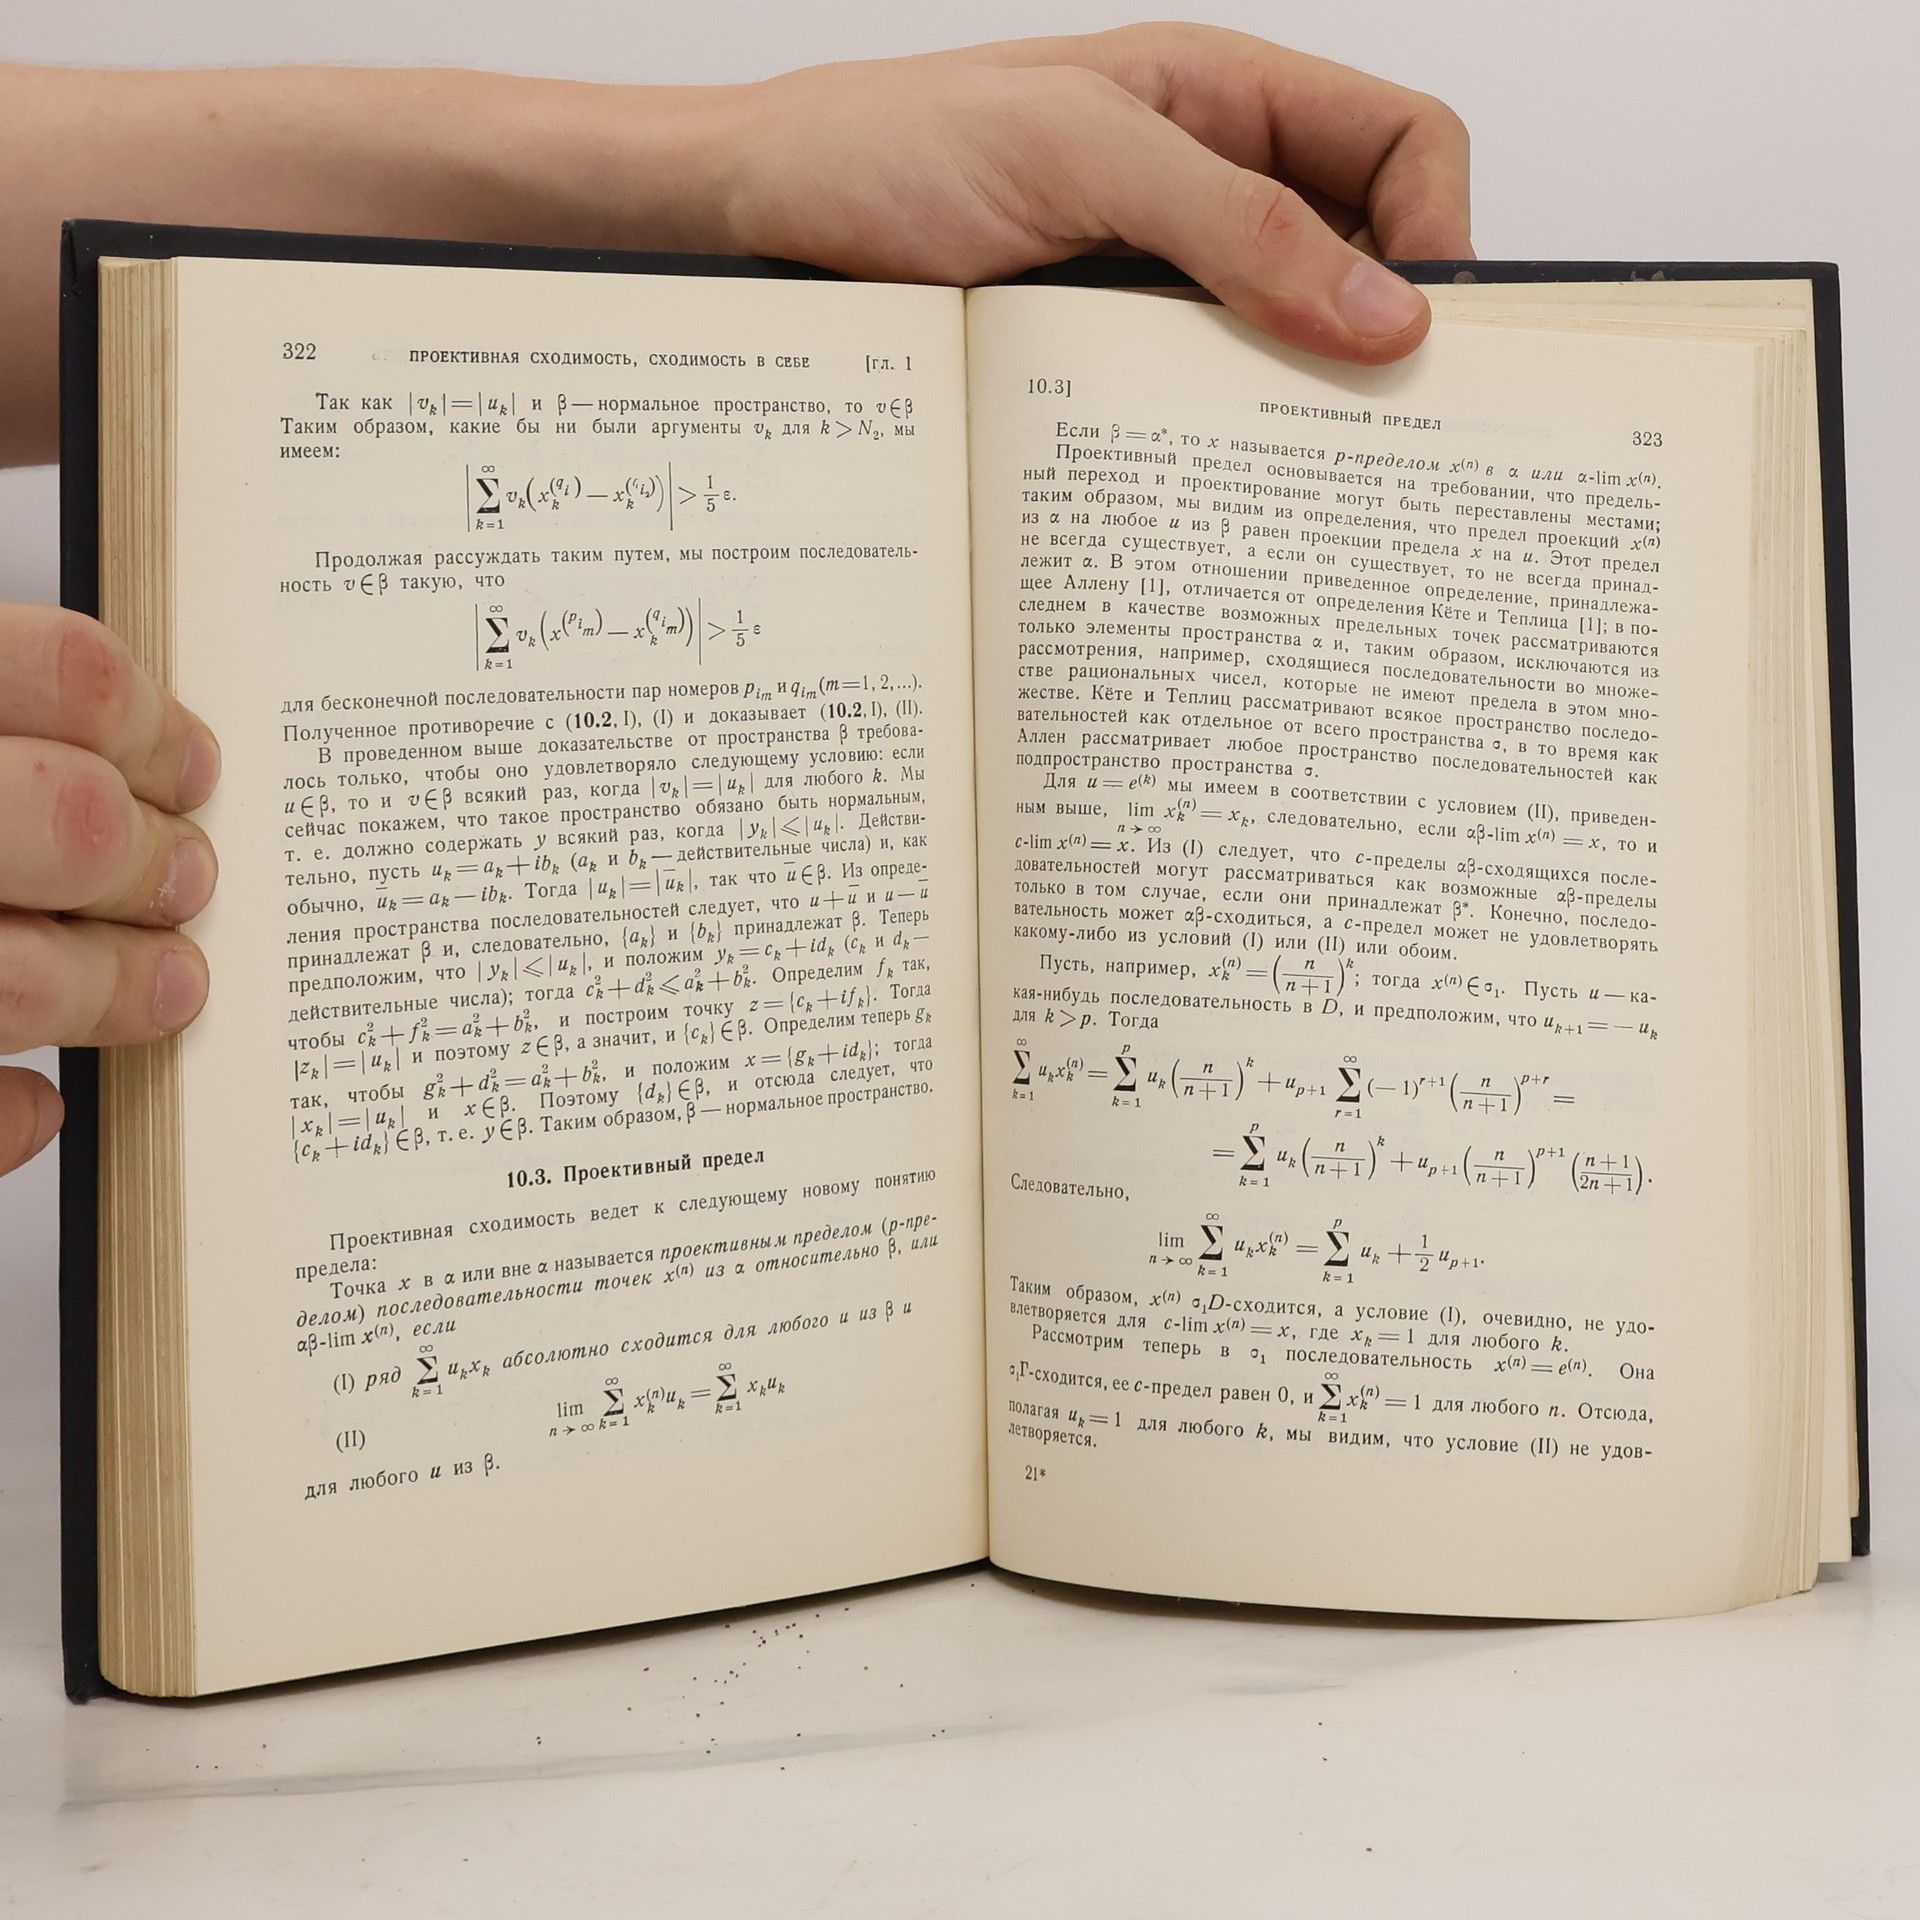 322 ПРОЕКТИВНАЯ СХОДИМОСТЬ, СХОДИМОСТЬ В СЕБЕ [гл. 1
Так как |vₖ|=|uₖ| и β — нормальное пространство, то v∈β
Таким образом, какие бы ни были аргументы vₖ для k > N₂, мы
имеем:
|∑_{k=1}^{∞} vₖ(xₖ^{(q_i)} — xₖ)| > 1/5 ε.
Продолжая рассуждать таким путем, мы построим последователь-
ность v∈β такую, что
|∑_{k=1}^{∞} vₖ(x^{(p_{i_m})} — xₖ^{(q_{i_m})})| > 1/5 ε
для бесконечной последовательности пар номеров p_{i_m} и q_{i_m} (m=1, 2,...).
Полученное противоречие с (10.2, I), (I) и доказывает (10.2, I), (II).
В проведенном выше доказательстве от пространства β требова-
лось только, чтобы оно удовлетворяло следующему условию: если
u∈β, то и v∈β всякий раз, когда |vₖ|=|uₖ| для любого k. Мы
сейчас покажем, что такое пространство обязано быть нормальным,
т. е. должно содержать y всякий раз, когда |yₖ|⩽|uₖ|. Действи-
тельно, пусть uₖ=aₖ+ibₖ (aₖ и bₖ — действительные числа) и, как
обычно, ūₖ=aₖ—ibₖ. Тогда |uₖ|=|ūₖ|, так что ū∈β. Из опреде-
ления пространства последовательностей следует, что u+ū и u—ū
принадлежат β и, следовательно, {aₖ} и {bₖ} принадлежат β. Теперь
предположим, что |yₖ|⩽|uₖ|, и положим yₖ=cₖ+idₖ (cₖ и dₖ—
действительные числа); тогда cₖ²+dₖ²⩽aₖ²+bₖ². Определим fₖ так,
чтобы cₖ²+fₖ²=aₖ²+bₖ², и построим точку z={cₖ+ifₖ}. Тогда
|zₖ|=|uₖ| и поэтому z∈β, а значит, и {cₖ}∈β. Определим теперь gₖ
так, чтобы gₖ²+dₖ²=aₖ²+bₖ², и положим x={gₖ+idₖ}; тогда
|xₖ|=|uₖ| и x∈β. Поэтому {dₖ}∈β, и отсюда следует, что
{cₖ+idₖ}∈β, т. е. y∈β. Таким образом, β — нормальное пространство.
10.3. Проективный предел
Проективная сходимость ведет к следующему новому понятию
предела:
Точка x в α или вне α называется проективным пределом (p-пре-
делом) последовательности точек x⁽ⁿ⁾ из α относительно β, или
αβ-lim x⁽ⁿ⁾, если
(I) ряд ∑_{k=1}^{∞} uₖxₖ абсолютно сходится для любого u из β и
(II) lim_{n→∞} ∑_{k=1}^{∞} xₖ⁽ⁿ⁾uₖ = ∑_{k=1}^{∞} xₖuₖ
для любого u из β.
10.3] ПРОЕКТИВНЫЙ ПРЕДЕЛ 323
Если β=α*, то x называется p-пределом x⁽ⁿ⁾ в α или α-lim x⁽ⁿ⁾.
Проективный предел основывается на требовании, что предель-
ный переход и проектирование могут быть переставлены местами;
таким образом, мы видим из определения, что предел проекций x⁽ⁿ⁾
из α на любое u из β равен проекции предела x на u. Этот предел
не всегда существует, а если он существует, то не всегда принад-
лежит α. В этом отношении приведенное определение, принадлежа-
щее Аллену [1], отличается от определения Кёте и Теплица [1]; в по-
следнем в качестве возможных предельных точек рассматриваются
только элементы пространства α и, таким образом, исключаются из
рассмотрения, например, сходящиеся последовательности во множе-
стве рациональных чисел, которые не имеют предела в этом мно-
жестве. Кёте и Теплиц рассматривают всякое пространство последо-
вательностей как отдельное от всего пространства σ, в то время как
Аллен рассматривает любое пространство последовательностей как
подпространство пространства σ.
Для u=e⁽ᵏ⁾ мы имеем в соответствии с условием (II), приведен-
ным выше, lim_{n→∞} xₖ⁽ⁿ⁾=xₖ, следовательно, если αβ-lim x⁽ⁿ⁾=x, то и
c-lim x⁽ⁿ⁾=x. Из (I) следует, что c-пределы αβ-сходящихся после-
довательностей могут рассматриваться как возможные αβ-пределы
только в том случае, если они принадлежат β*. Конечно, последо-
вательность может αβ-сходиться, а c-предел может не удовлетворять
какому-либо из условий (I) или (II) или обоим.
Пусть, например, xₖ⁽ⁿ⁾=(n/(n+1))ᵏ; тогда x⁽ⁿ⁾∈σ₁. Пусть u — ка-
кая-нибудь последовательность в D, и предположим, что uₖ₊₁=—uₖ
для k>p. Тогда
∑_{k=1}^{∞} uₖxₖ⁽ⁿ⁾=∑_{k=1}^{p} uₖ(n/(n+1))ᵏ+u_{p+1} ∑_{r=1}^{∞}(—1)^{r+1}(n/(n+1))^{p+r}=
=∑_{k=1}^{p} uₖ(n/(n+1))ᵏ+u_{p+1}(n/(n+1))^{p+1}((n+1)/(2n+1)).
Следовательно,
lim_{n→∞} ∑_{k=1}^{∞} uₖxₖ⁽ⁿ⁾=∑_{k=1}^{p} uₖ+1/2 u_{p+1}.
Таким образом, x⁽ⁿ⁾ σ₁D-сходится, а условие (I), очевидно, не удо-
влетворяется для c-lim x⁽ⁿ⁾=x, где xₖ=1 для любого k.
Рассмотрим теперь в σ₁ последовательность x⁽ⁿ⁾=e⁽ⁿ⁾. Она
σ₁Γ-сходится, ее c-предел равен 0, и ∑_{k=1}^{∞} xₖ⁽ⁿ⁾=1 для любого n. Отсюда,
полагая uₖ=1 для любого k, мы видим, что условие (II) не удов-
летворяется.
21*